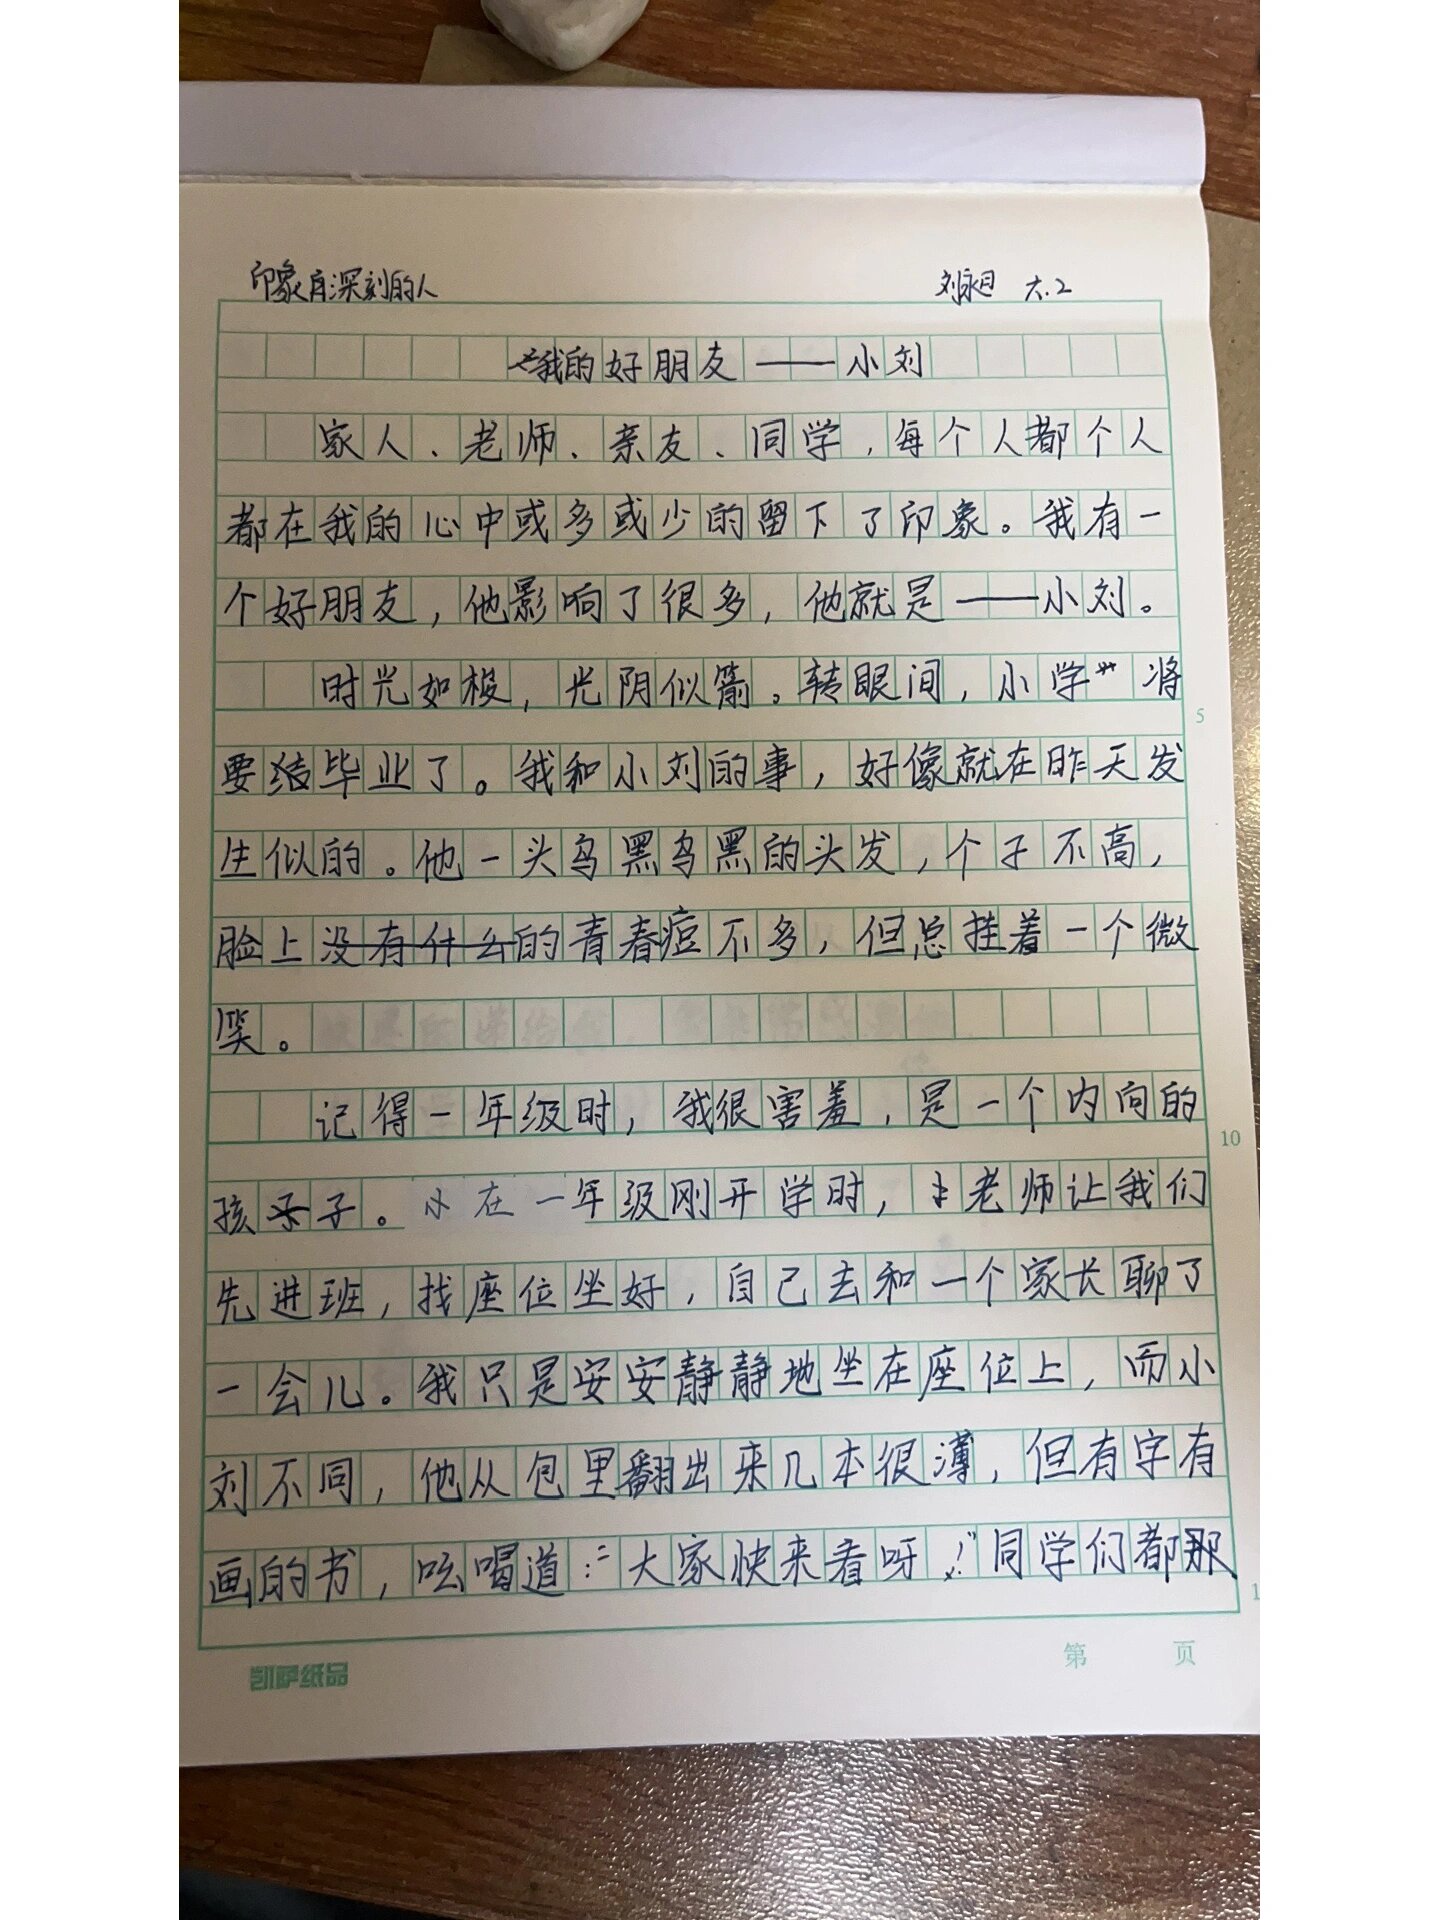 印象深刻的人
刘 六.2
我的好朋友——小刘
家人、老师、亲友、同学，每个人都个人
都在我的心中或多或少的留下了印象。我有一
个好朋友，他影响了很多，他就是——小刘。
时光如梭，光阴似箭。转眼间，小学 将
要结毕业了。我和小刘的事，好像就在昨天发
生似的。他一头乌黑乌黑的头发，个子不高，
脸上没有什么的青春痘不多，但总挂着一个微
笑。
记得一年级时，我很害羞，是一个内向的
孩子。在一年级刚开学时，老师让我们
先进班，找座位坐好，自己去和一个家长聊了
一会儿。我只是安安静静地坐在座位上，而小
刘不同，他从包里翻出来几本很薄，但有字有
画的书，吆喝道：“大家快来看呀！”同学们都那
5
10
1
凯萨纸品
第 页